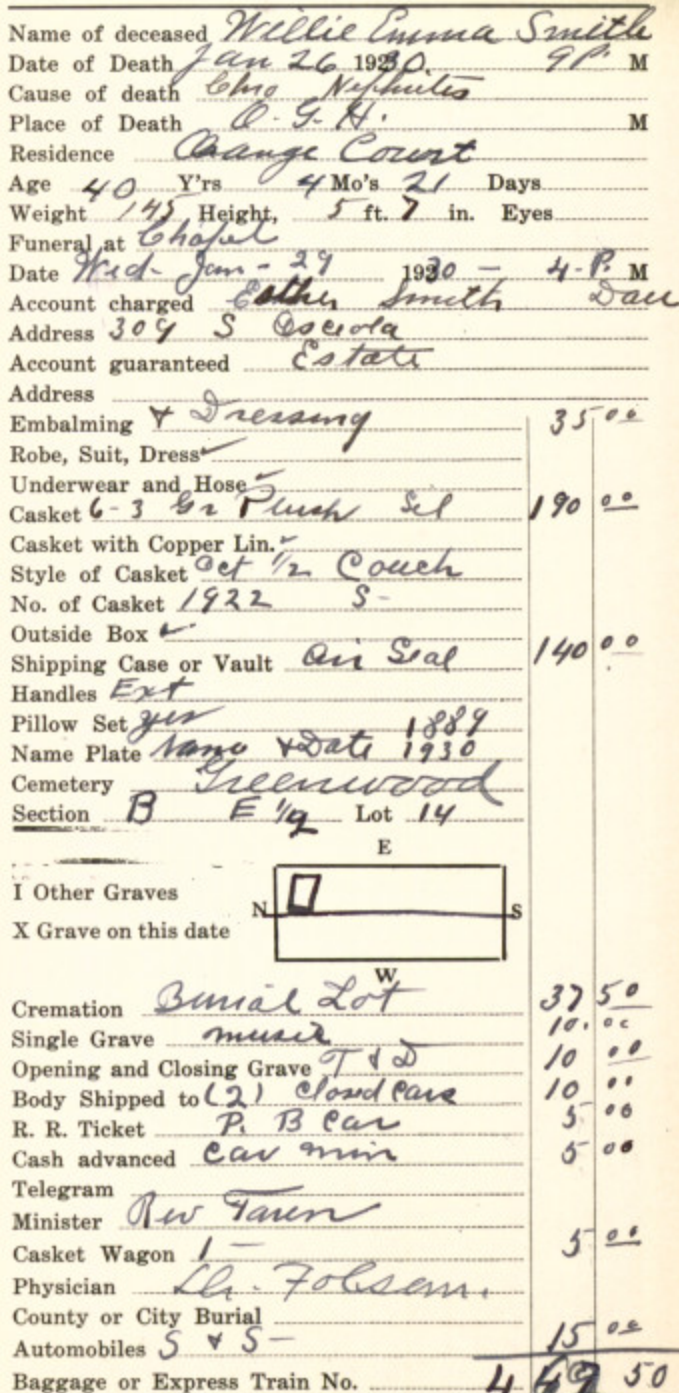 Name of deceased Willie Emma Smith
Date of Death Jan 26 1930. 9 P. M
Cause of death Chro Nephritis
Place of Death O. G. H. M
Residence Orange Court
Age 40 Y'rs 4 Mo's 21 Days
Weight 145 Height, 5 ft. 7 in. Eyes
Funeral at Chapel
Date Wed- Jan - 29 1930 - 4- P. M
Account charged Esther Smith Dau
Address 309 S Osceola
Account guaranteed Estate
Address
Embalming & Dressing 35 00
Robe, Suit, Dress ✓
Underwear and Hose ✓
Casket 6-3 Gr Plush Sil 190 00
Casket with Copper Lin. ✓
Style of Casket Oct 1/2 Couch
No. of Casket 1922 S-
Outside Box ✓
Shipping Case or Vault Air Seal 140 00
Handles Ext
Pillow Set yes 1889
Name Plate Name & Date 1930
Cemetery Greenwood
Section B E 1/2 Lot 14
E
I Other Graves
N S
X Grave on this date
W
Cremation Burial Lot 37 50
Single Grave music 10. 00
Opening and Closing Grave T & D 10 00
Body Shipped to (2) Closed Cars 10 00
R. R. Ticket P. B Car 5 00
Cash advanced Car Min 5 00
Telegram
Minister Rev
Casket Wagon 1 - 5 00
Physician Dr. Folsom.
County or City Burial
Automobiles S & S - 15 00
Baggage or Express Train No. 50